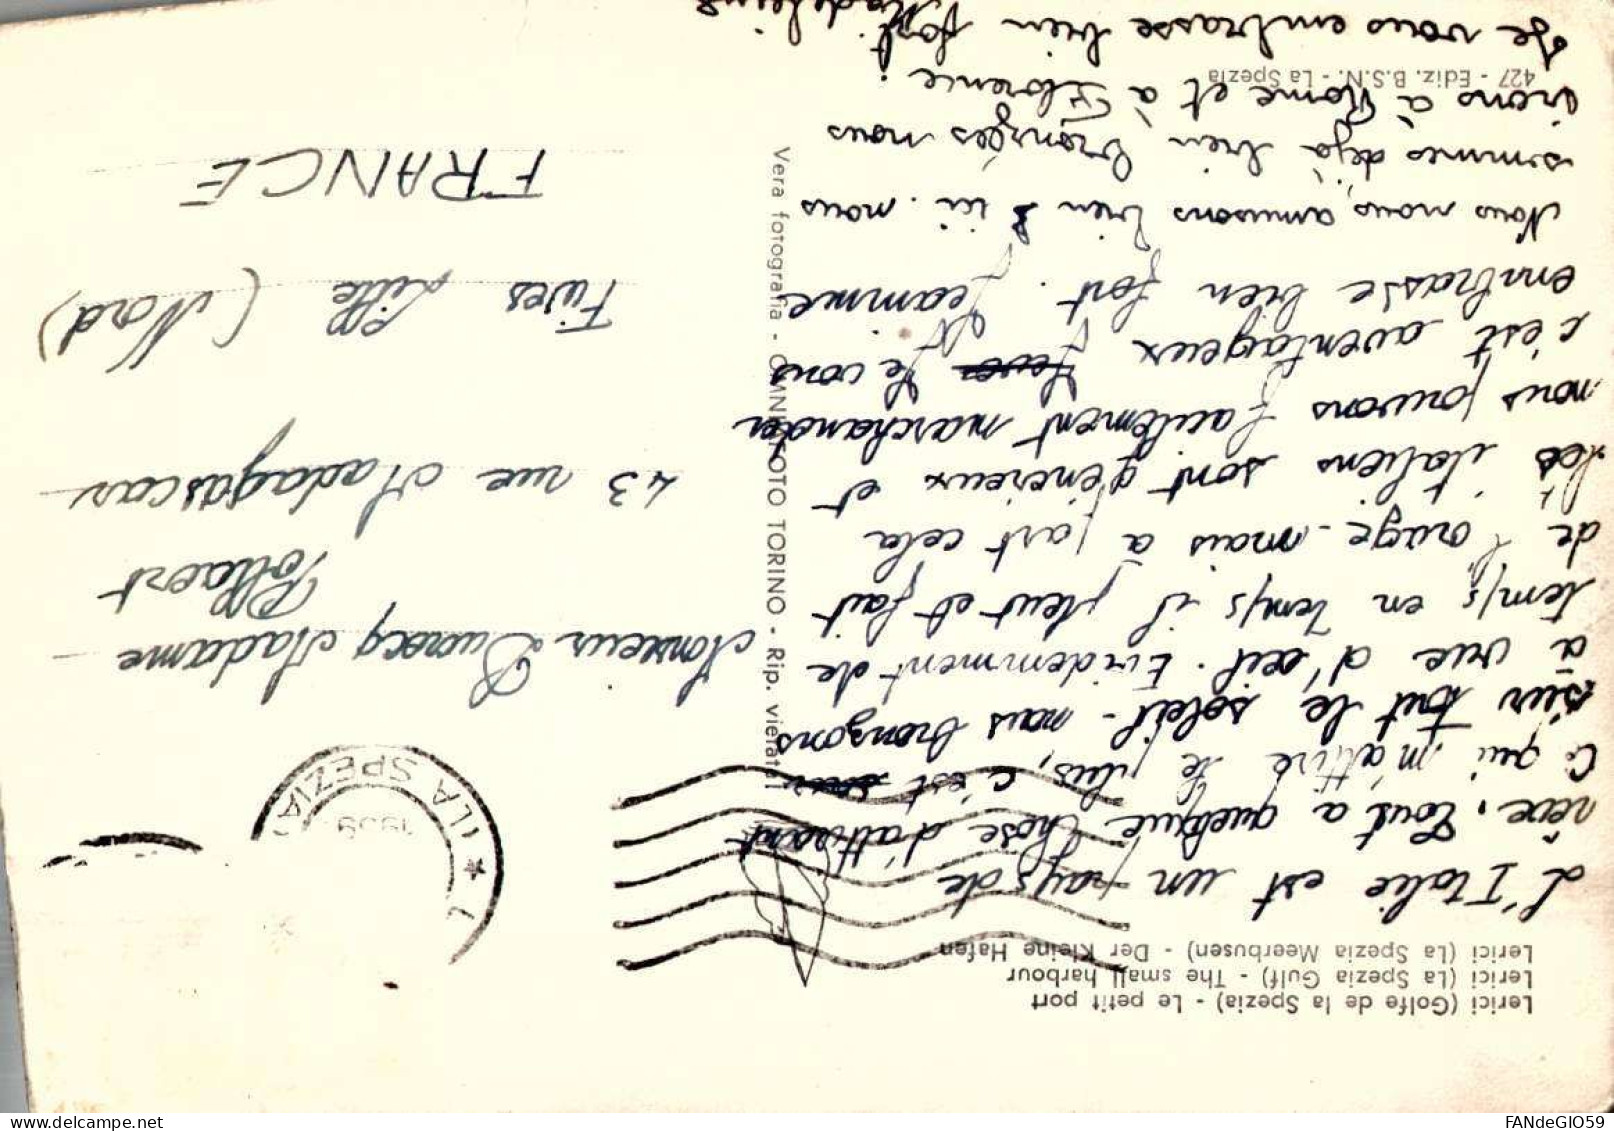 Lerici (Golfe de la Spezia) - Le petit port
Lerici (La Spezia Gulf) - The small harbour
Lerici (La Spezia Meerbusen) - Der Kleine Hafen
L'Italie est un pays de
rêve. Tout a quelque chose d'attirant
Ce qui m'attire le plus, c'est
sur tout le soleil - nous bronzons
à vue d'œil. Evidemment de
temps en temps il pleut et fait
de l'orage. mais à part cela
les italiens sont génereux et
nous pouvons facilement marchander
c'est aventageux Je vous
embrasse bien fort. Jeamme
Nous nous amusons bien ici. nous
sommes déjà bien bronzées nous
irons à Rome et à Florence.
Je vous embrasse bien fort
Madeleine
427 - Ediz. B.S.N. - La Spezia
Vera fotografia - OMNIAFOTO TORINO - Rip. vietata
LA SPEZIA
1959
Monsieur Durocq Madame
Pollaert
43 rue Madagascar
Fives Lille (Nord)
FRANCE
FANdeGIO59